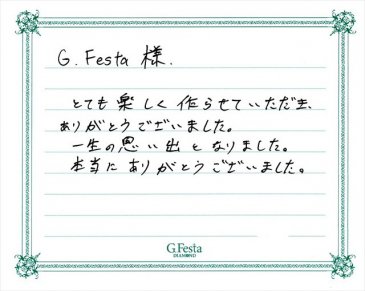 G. Festa 様.
とても楽しく作らせていただき、
ありがとうございました。
一生の思い出となりました。
本当にありがとうございました。
G.Festa
DIAMOND